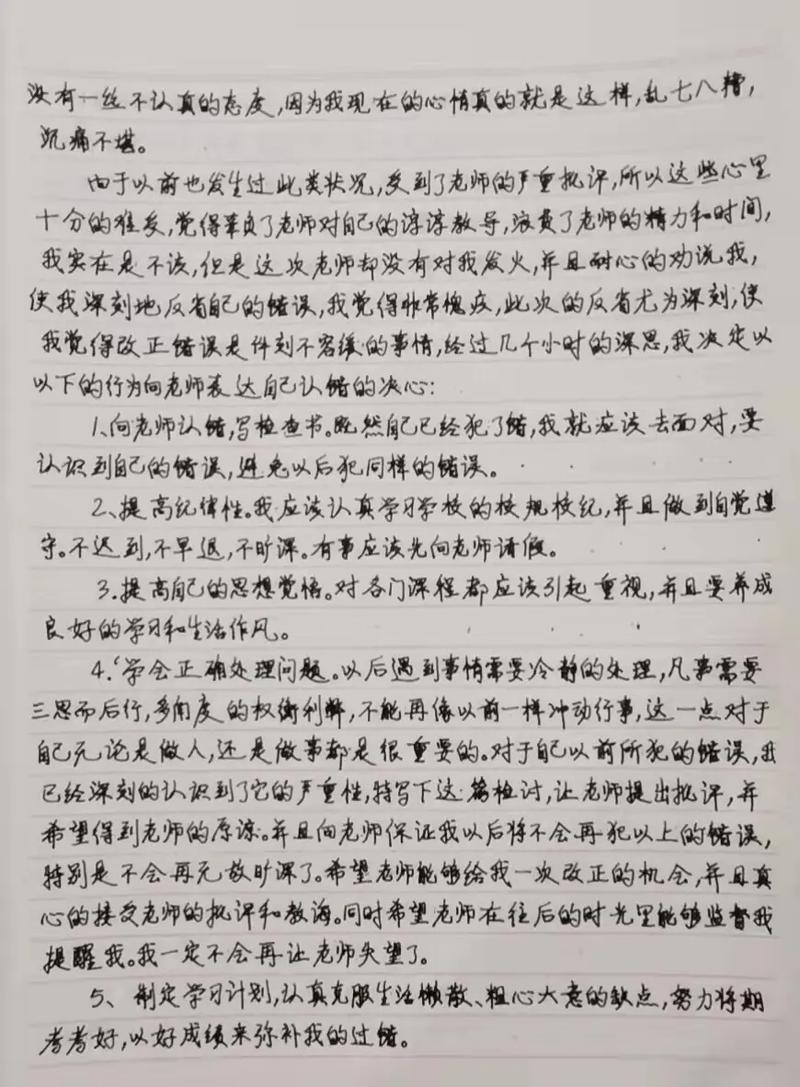 没有一丝不认真的态度,因为我现在的心情真的就是这样,乱七八糟,
沉痛不堪。
由于以前也发生过此类状况,受到了老师的严重批评,所以这些心里
十分的难受,觉得辜负了老师对自己的谆谆教导,浪费了老师的精力和时间,
我实在是不该,但是这次老师却没有对我发火,并且耐心的劝说我,
使我深刻地反省自己的错误,我觉得非常愧疚,此次的反省尤为深刻,使
我觉得改正错误是件刻不容缓的事情,经过几个小时的深思,我决定以
以下的行为向老师表达自己认错的决心:
1、向老师认错,写检查书。既然自己已经犯了错,我就应该去面对,要
认识到自己的错误,避免以后犯同样的错误。
2、提高纪律性。我应该认真学习学校的校规校纪,并且做到自觉遵
守。不迟到,不早退,不旷课。有事应该先向老师请假。
3.提高自己的思想觉悟。对各门课程都应该引起重视,并且要养成
良好的学习和生活作风。
4.学会正确处理问题。以后遇到事情需要冷静的处理,凡事需要
三思而后行,多角度的权衡利弊,不能再像以前一样冲动行事,这一点对于
自己无论是做人,还是做事都是很重要的。对于自己以前所犯的错误,我
已经深刻的认识到了它的严重性,特写下这篇检讨,让老师提出批评,并
希望得到老师的原谅。并且向老师保证我以后将不会再犯以上的错误,
特别是不会再无故旷课了。希望老师能够给我一次改正的机会,并且真
心的接受老师的批评和教诲。同时希望老师在往后的时光里能够监督我
提醒我。我一定不会再让老师失望了。
5、制定学习计划,认真克服生活懒散、粗心大意的缺点,努力将期
考考好,以好成绩来弥补我的过错。